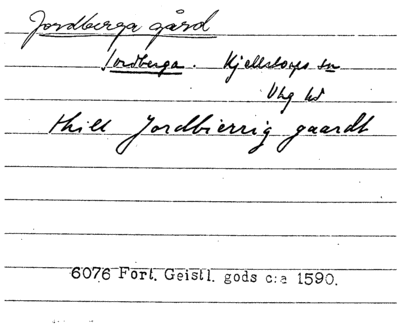 Jordberga gård
Jordberga. Kjellstorps sn
Vhg hd
thill Jordbierrig gaardt
6076 Fort. Geistl. gods c:a 1590.